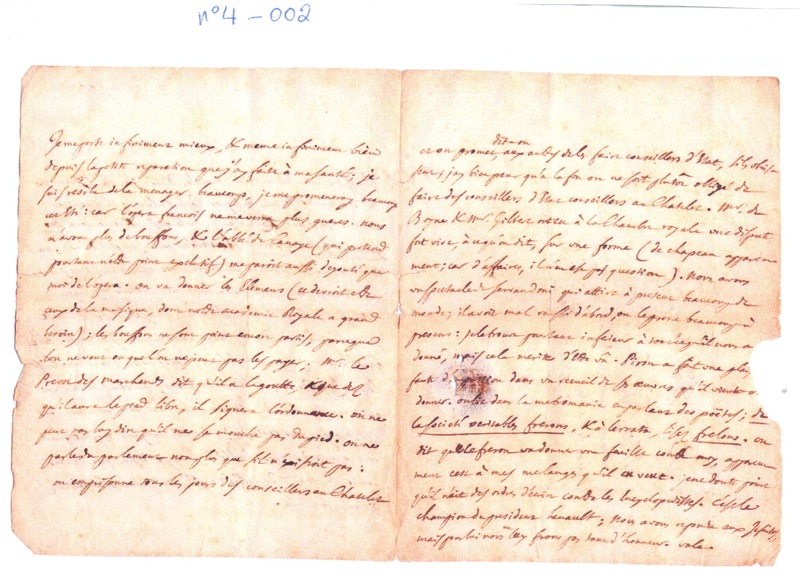 n° 4 - 002
Je me porte infiniment mieux, & meme infiniment bien
depuis la petite reparation que j'ay faite à ma santé; je
suis résolu de la menager beaucoup, je me promeneray beaucoup
cet été: car l'opera francois ne me verra plus gueres. nous
n'avons plus de bouffons, & l'abbé de Canaye (qui pretend
pourtant n'etre point exclusif) me paroit aussi degouté que
moi de l'opera. on va donner les Elemens (ce devroit etre
ceux de la musique, dont notre academie Royale a grand
besoin); les bouffons ne sont point encore partis, parce que
l'on ne veut ou que l'on ne peut pas les payer; Mr. le
Prevot des marchands dit qu'il a la goutte & que dès
qu'il aura le pied libre, il signera l'ordonnance. on ne
peut pas luy dire qu'il ne se mouche pas du pied. on ne
parle du parlement non plus que s'il n'existoit pas.
on emprisonne tous les jours des conseillers au Chatelet
dit on
et on promet aux autres de les faire conseillers d'Etat, s'ils obeis-
sent; j'ay bien peur qu'à la fin on ne soit plutôt obligé de
faire des conseillers d'Etat conseillers au Chatelet. Mr. de
Boyne & Mr. Gilbert ont eu à la Chambre royale une dispute
fort vive, à ce qu'on dit, sur une forme (de chapeau apparem
ment; car d'affaires, il n'en est pas question). Nous avons
un spectacle de Servandoni qui attire à present beaucoup de
monde; il avoit mal reussi d'abord, on le prone beaucoup à
present: je le trouve pourtant inferieur à tout ce qu'il nous a
donné, mais cela merite d'etre vû. Piron a fait une plai
sante dans un recueil de ses oeuvres qu'il vient
donner. on lit dans la metromanie en parlant des poëtes; de
la societé veritables frerons, & à l'errata, lisez frelons. on
dit que le freron va donner une feuille contre moy, apparem
ment c'est à mes melanges qu'il en veut. je ne doute point
qu'il n'ait des ordres d'ecrire contre les Encyclopedistes. C'est le
champion du president henault; Nous avons repondu aux Jesuites,
mais pour lui nous ne luy ferons pas tant d'honneur. vale.